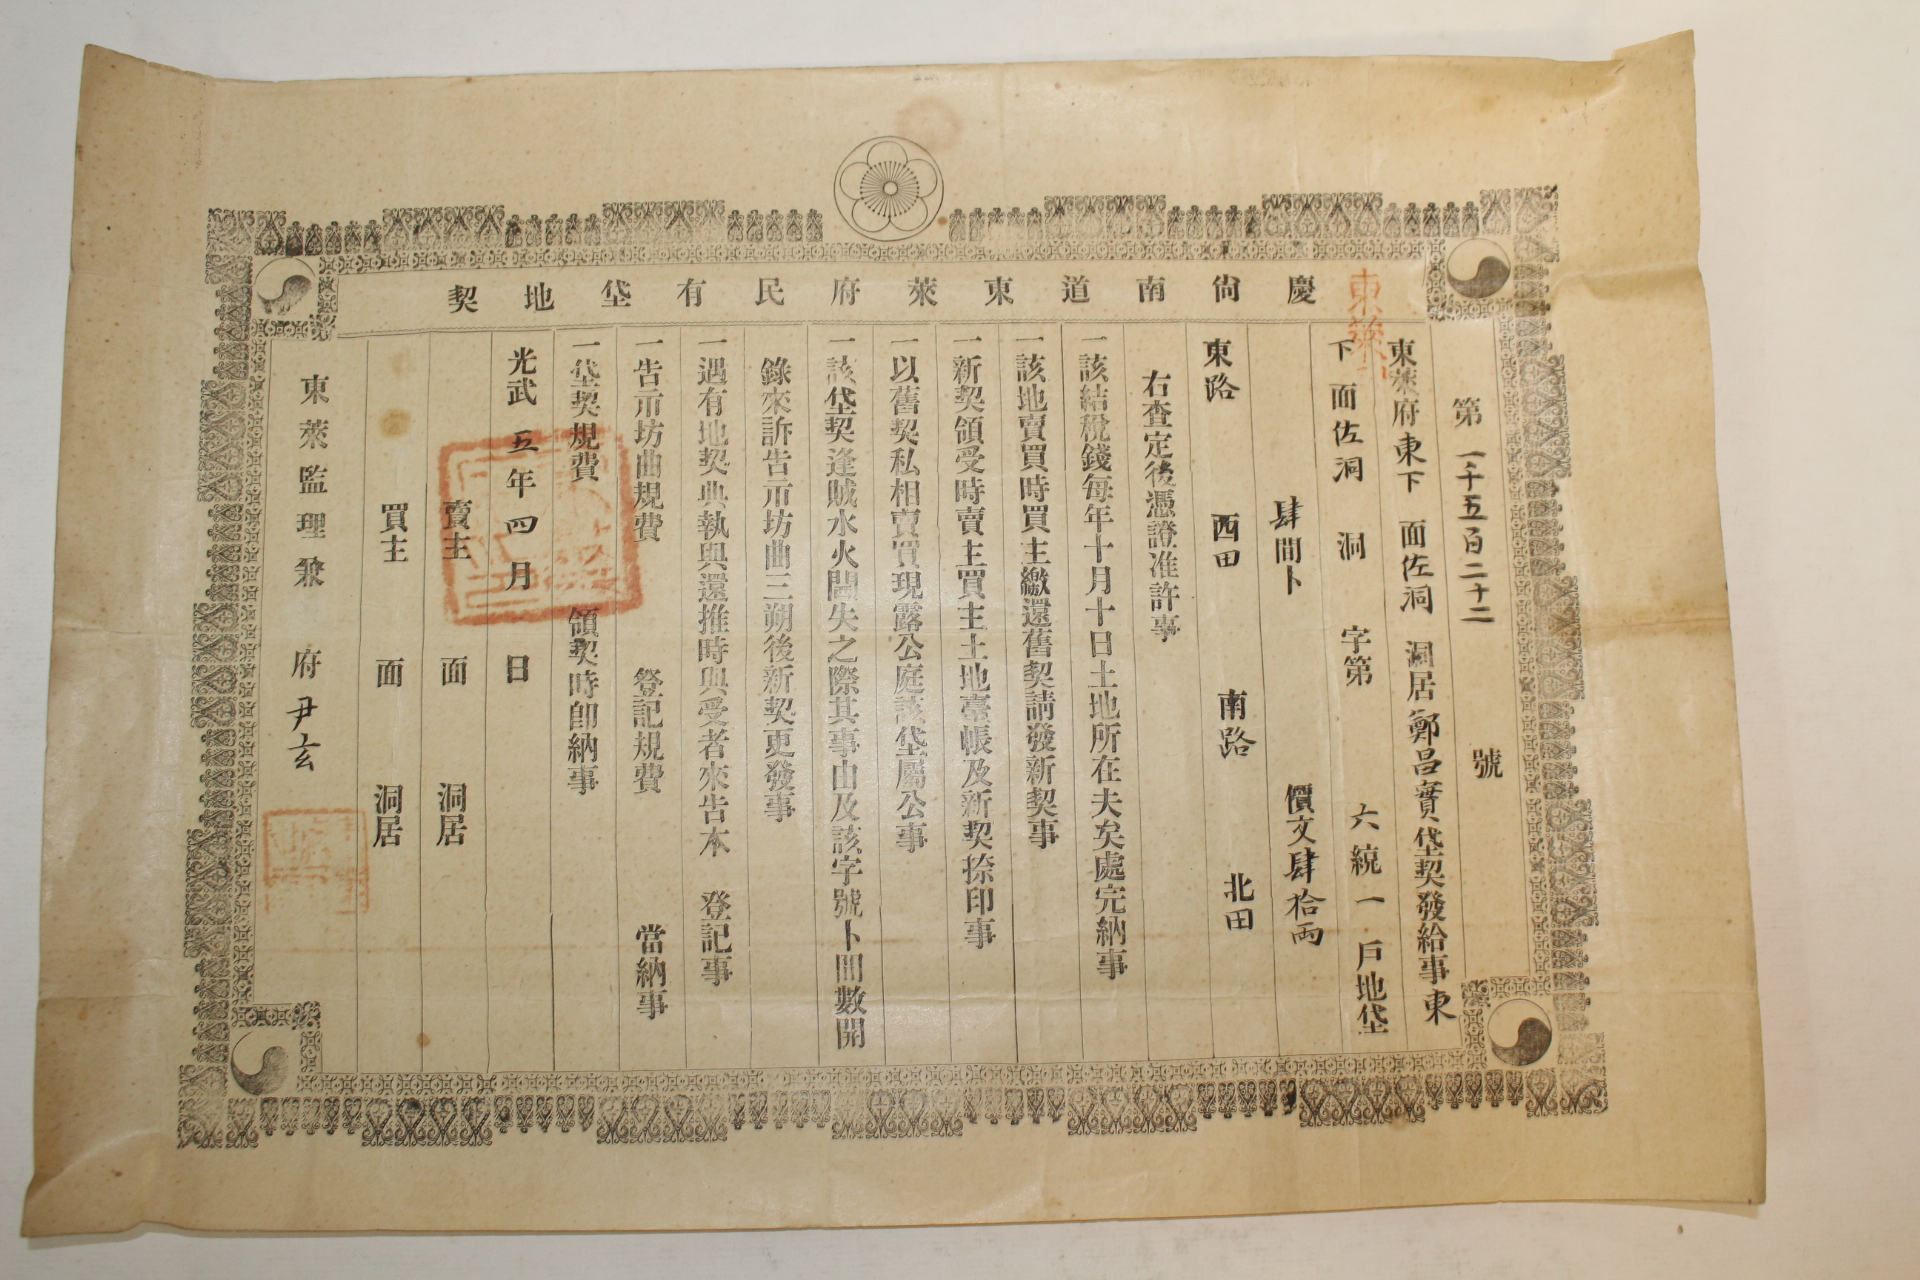 慶尙南道東萊府民有垈地契
第一千五百二十二號
東萊府東下面佐洞洞居鄭昌實垈契發給事東
下面佐洞洞字第六統一戶地垈
肆間卜價文肆拾両
東路西田南路北田
右查定後憑證准許事
一該結稅錢每年十月十日土地所在夫矣處完納事
一該地賣買時買主繳還舊契請發新契事
一新契領受時賣主買主土地臺帳及新契捺印事
一以舊契私相賣買現露公庭該垈屬公事
一該垈契逢賊水火閪失之際其事由及該字號卜間數開
錄來訴告示坊曲三朔後新契更發事
一遇有地契典執與還推時與受者來告本登記事
一告示坊曲規費登記規費當納事
一垈契規費領契時卽納事
光武五年四月日
賣主面洞居
買主面洞居
東萊監理兼府尹玄